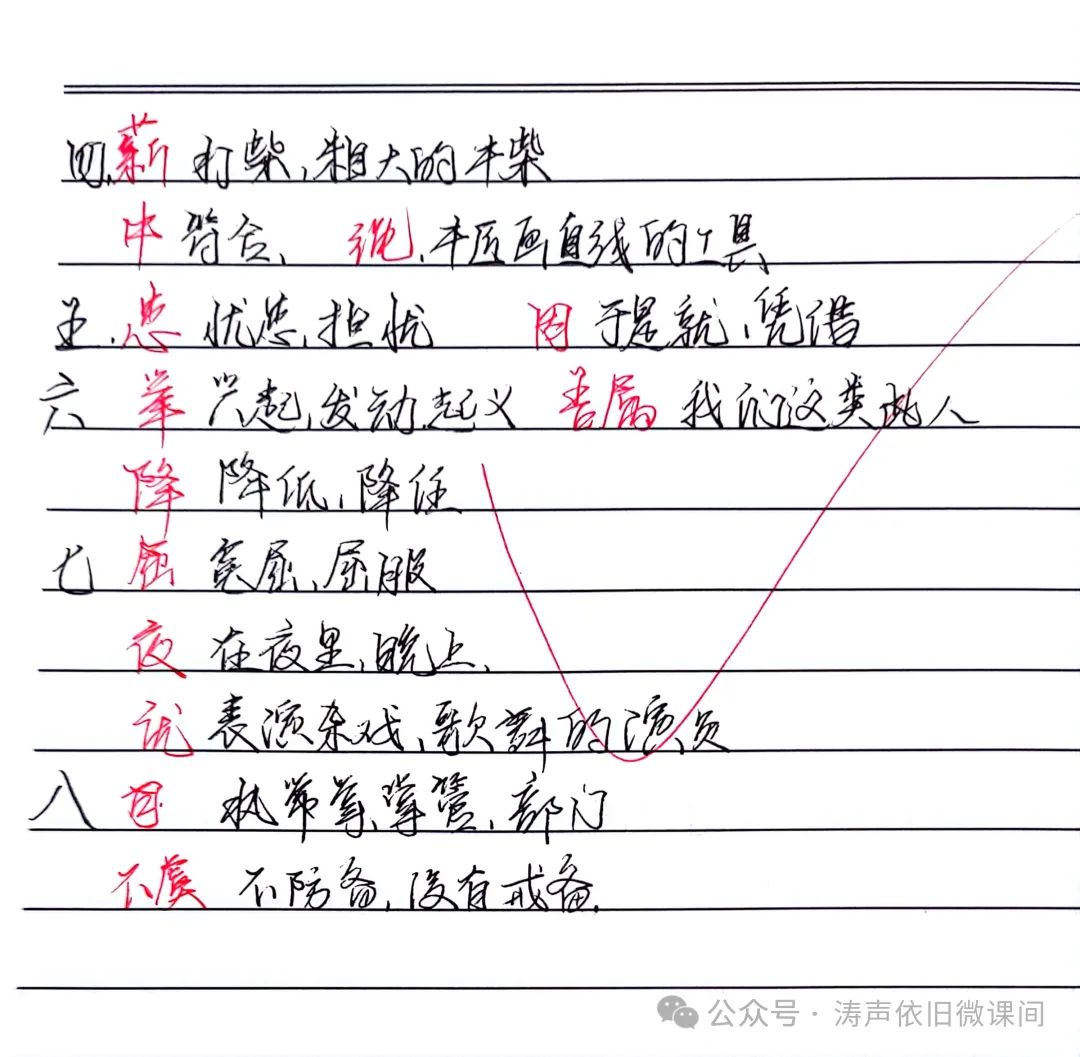 四.薪 打柴,粗大的木柴
中 符合、 绳.木匠画直线的工具
五.患 忧患,担忧 因 于是就,凭借
六 举 兴起,发动,起义 吾属 我们这类此人
降 降低,降住
七 屈 冤屈,屈服
夜 在夜里,晚上.
优 表演杂戏,歌舞的演员
八 执 掌,掌管,部门
不虞 不防备,没有戒备.
公众号 · 涛声依旧微课间